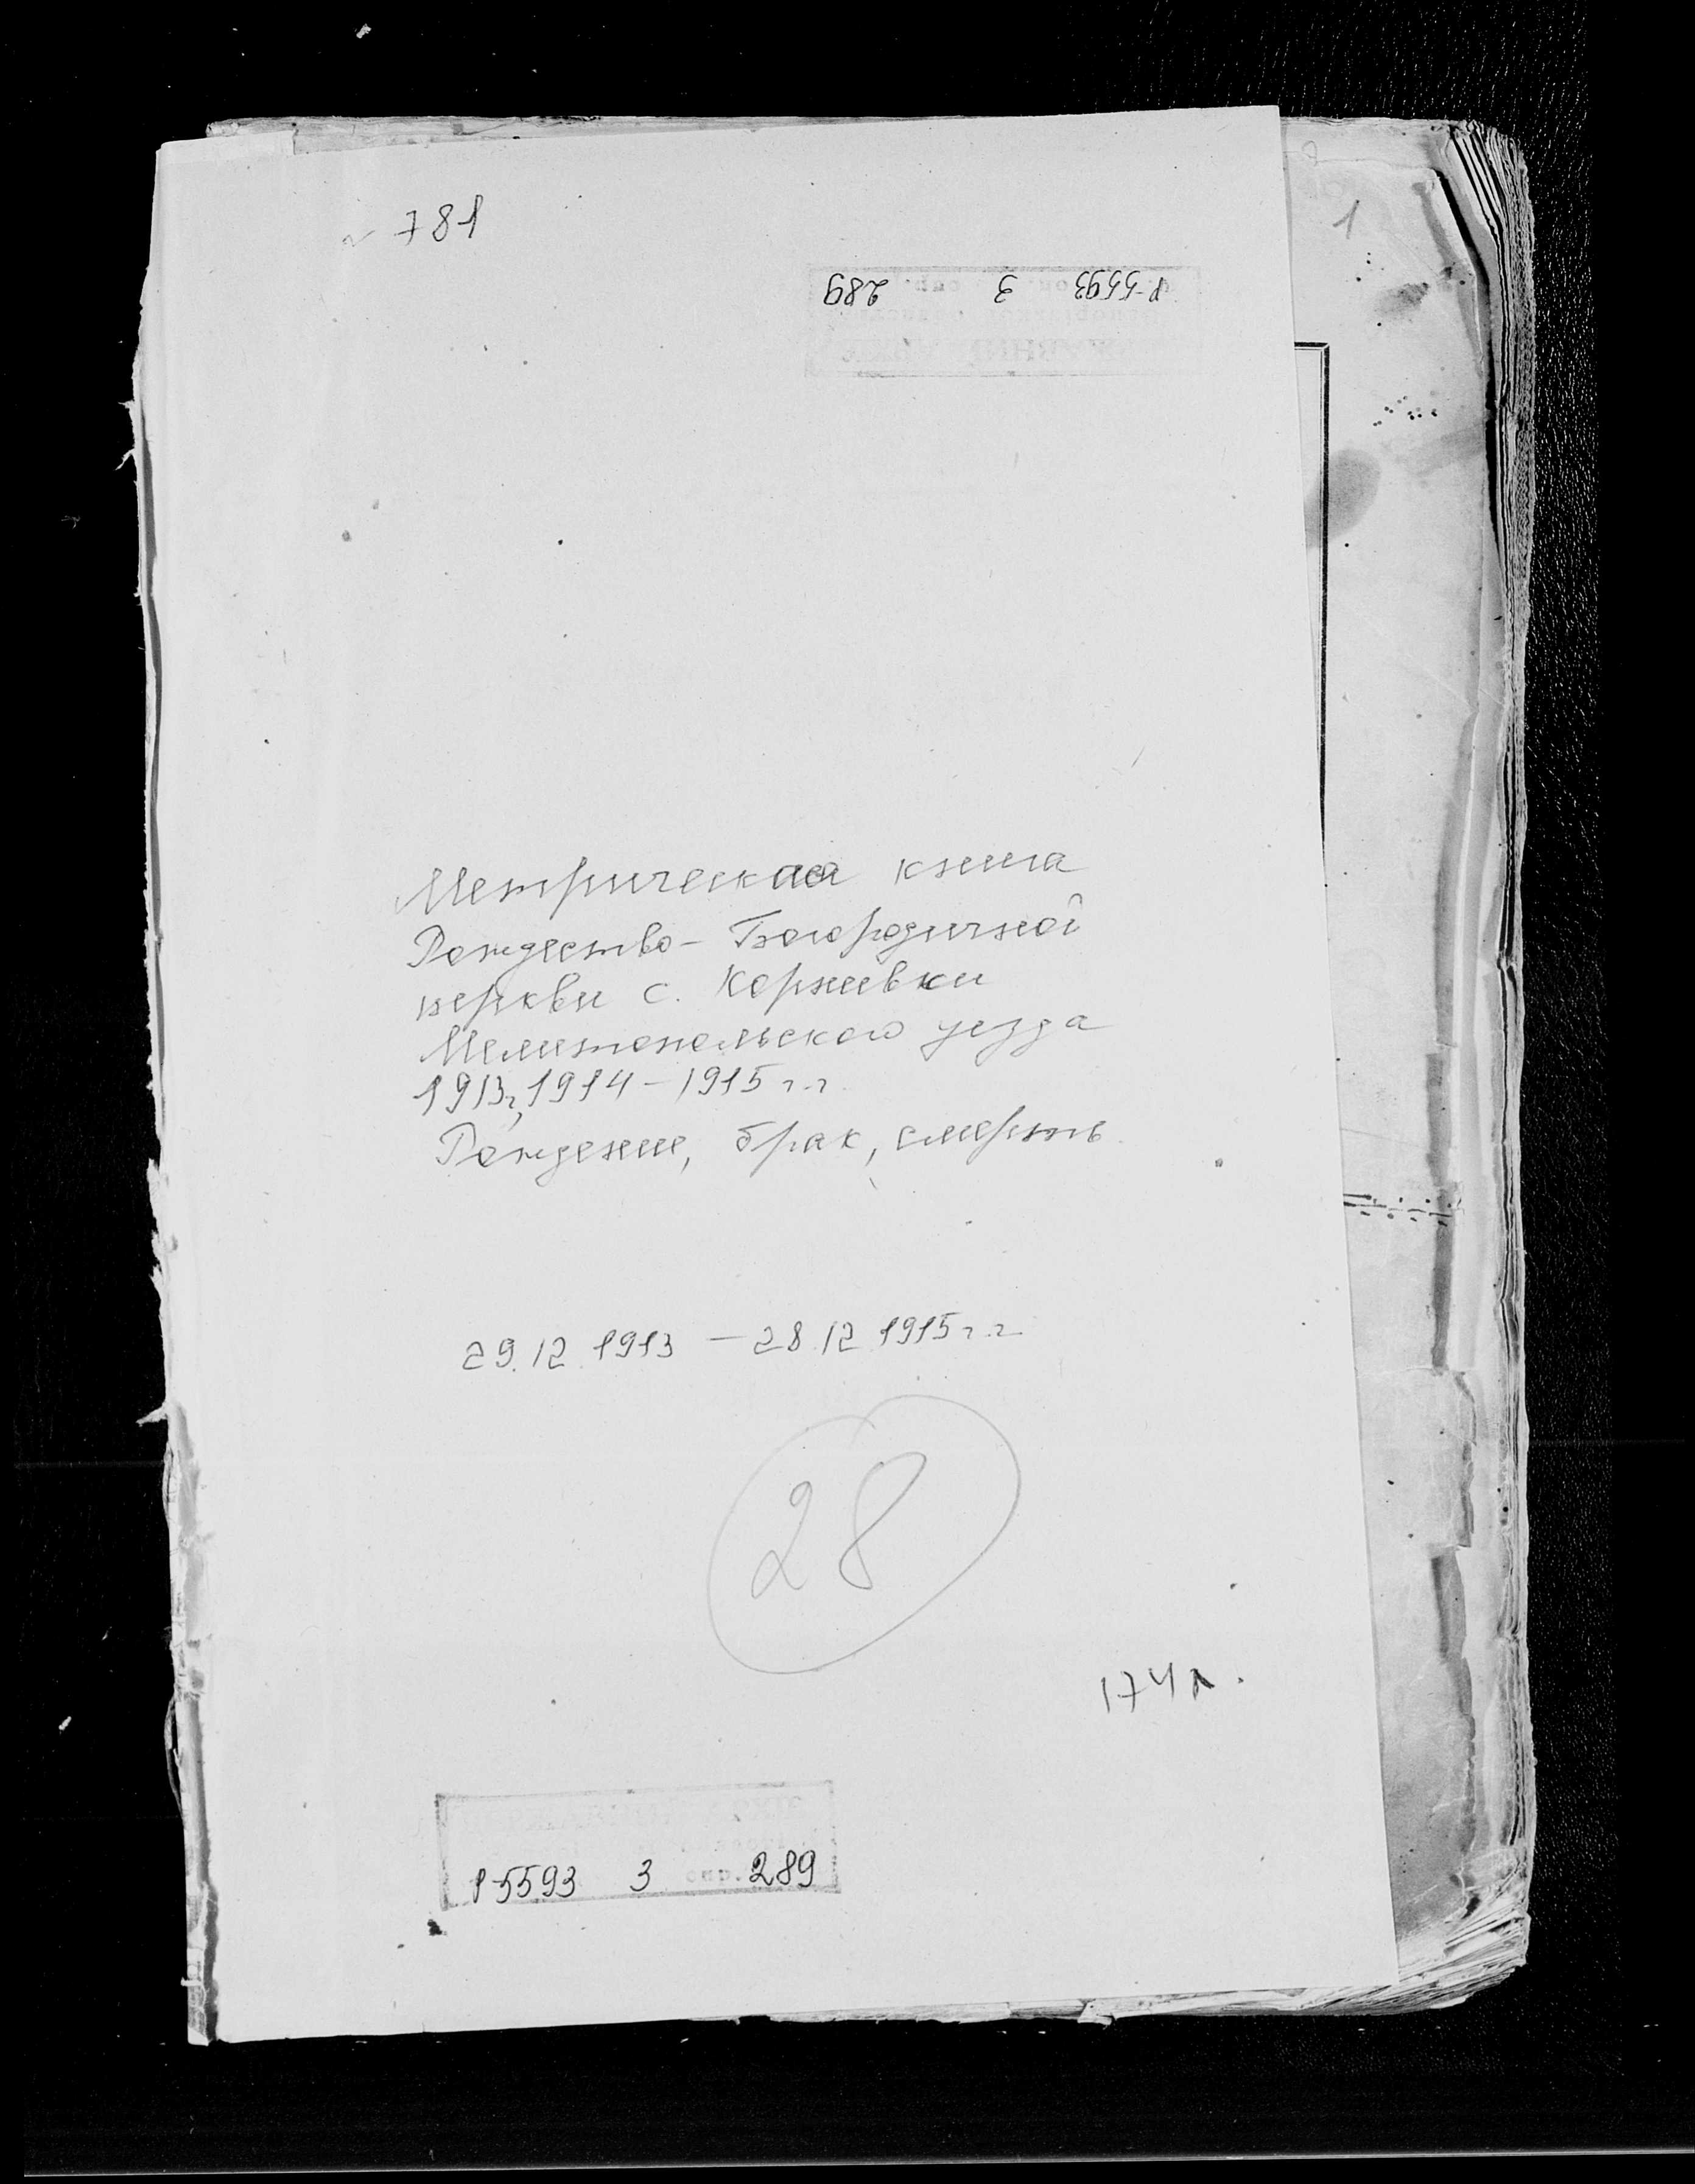 781
Р-5593 3 289
1
Метрическая книга
Рождество-Богородичной
церкви с. Корнивки
Мелитопольского уезда
1913г, 1914-1915 г.г.
Рождение, брак, смерть.
29.12.1913 — 28.12.1915 г.г.
28
174 л.
Р-5593 3 спр. 289